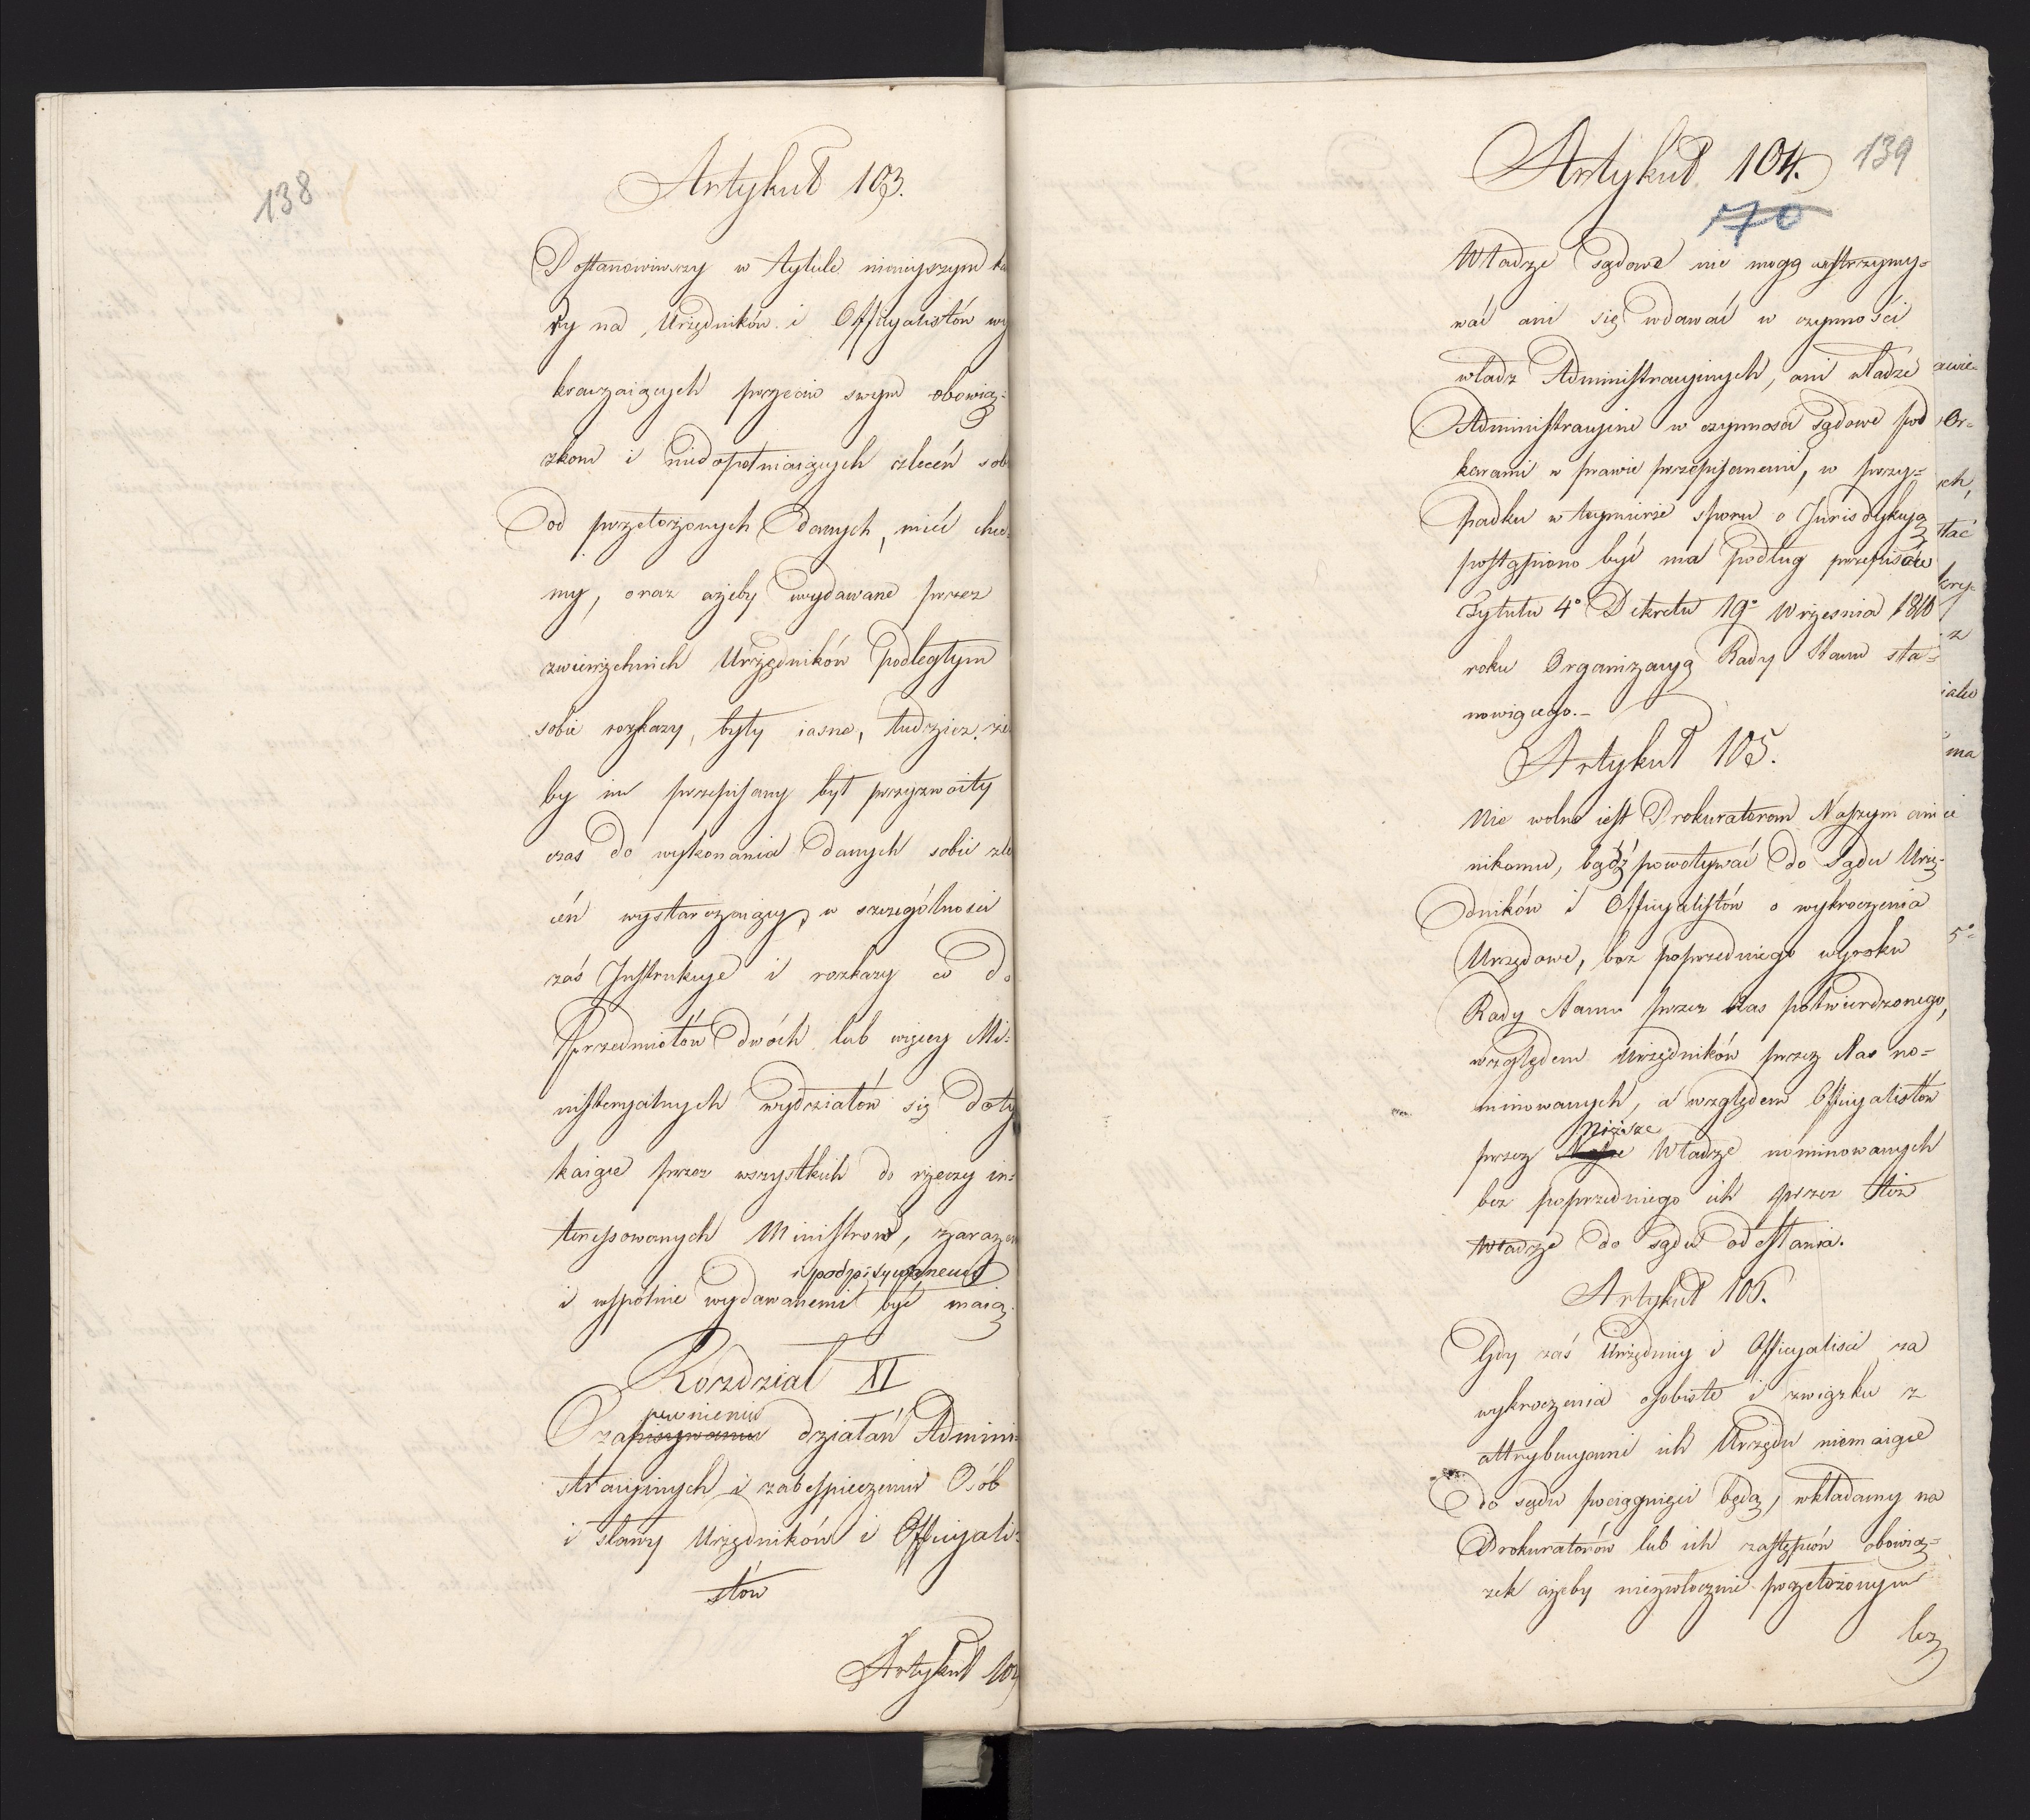 138
Artykuł 103.
Postanowiwszy w tytule ninieyszym ka
ry na Urzędników i Officyalistów wy
kraczaiących przeciw swym obowią=
zkom i niedopełniaiących zleceń sob
od przełożonych danych, mieć chce
my, oraz ażeby wydawane przez
zwierzchnich Urzędników podległym
sobie rozkazy, były iasne, tudzież, że
by im przepisany był przyzwoity
czas do wykonania danych sobie zle
ceń wystarczaiący, w szczególności
zaś Instrukcye i rozkazy co do
Przedmiotów dwóch lub więcey Mi=
nisteryalnych wydziałów się doty
kaiące przez wszystkich do rzeczy in=
teressowanych Ministrow, zarazem
i podpisywanemi
i wspólnie wydawanemi być maią.
Rozdział XI
pewnieniu
O zapisywaniu działań Admini=
stracyinych i zabespieczeniu Osób
i sławy Urzędników i Officyali=
stów
Artykuł 10
139
Artykuł 104.
70
Władze Sądowe nie mogą wstrzymy=
wać ani się wdawać w czynności
władz Administracyinych, ani władze
Administracyine w czynności Sądowe pod
karami w prawie przepisanemi, w przy=
padku w teymierze sporu o Jurisdykcyą
postąpiono być ma podług przepisów
Tytułu 4° Dekretu 19° Września 1810
roku Organizacyą Rady Stanu sta=
nowiącego.—
Artykuł 105.
Nie wolno iest Prokuratorom Naszym ani
nikomu, bądź powoływać do Sądu Urzę=
dników i Officyalistów o wykroczenia
Urzędowe, bez poprzedniego wyroku
Rady Stanu przez Nas potwierdzonego,
względem Urzędników przez Nas no=
minowanych, a względem Officyalistów
niższe
przez Władze nominowanych
bez poprzedniego ich przez też
Władze do sądu odesłania.
Artykuł 106.
Gdy zaś Urzędnicy i Officyaliści za
wykroczenia osobiste i związku z
attrybucyami ich Urzędu niemaiące
do sądu pociągnięci będą, wkładamy na
Prokuratorów lub ich zastępców obowią=
zek ażeby niezwłocznie przełożonym
tez